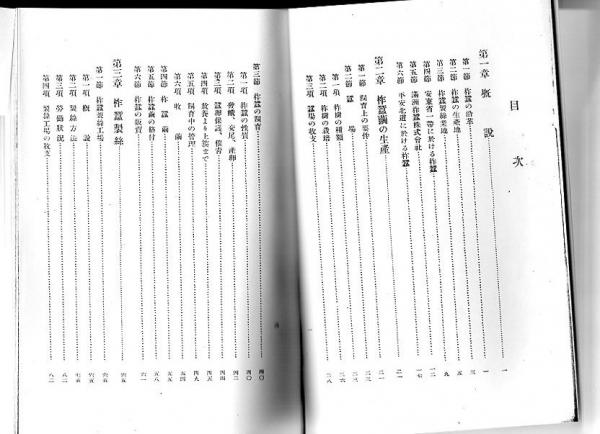 目次
第一章 概説 一
第一節 柞蠶の沿革 一
第二節 柞蠶の生產地 三
第三節 柞蠶製絲業地 五
第四節 安東省一帶に於ける柞蠶 九
第五節 滿洲柞蠶株式會社 一二
第六節 平安北道に於ける柞蠶 一七
第二章 柞蠶繭の生產 二一
第一節 飼育上の要件 二一
第二節 蠶場 二三
第一項 柞樹の種類 二三
第二項 柞樹の栽培 二六
第三項 蠶場の收支 三八
第三節 柞蠶の飼育 四〇
第一項 柞蠶の性質 四〇
第二項 發蛾、交尾、產卵 四二
第三項 蠶卵保護、催靑 四四
第四項 放養より上簇まで 四五
第五項 飼育中の管理 四九
第六項 收繭 五四
第四節 柞蠶繭 五五
第五節 柞蠶繭の格付 五八
第六節 柞蠶の販賣 六一
第三章 柞蠶製絲 六五
第一節 柞蠶製絲工場 六五
第一項 概說 六五
第二項 製絲方法 七五
第三項 勞働狀況 八二
第四項 製絲工場の收支 八二